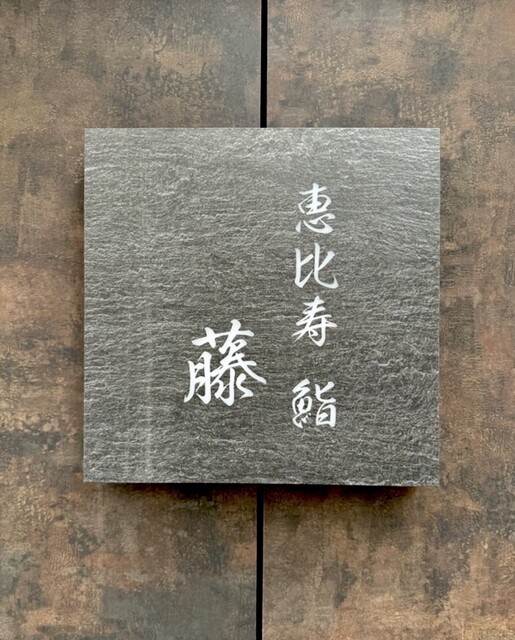 恵比寿 鮨
藤